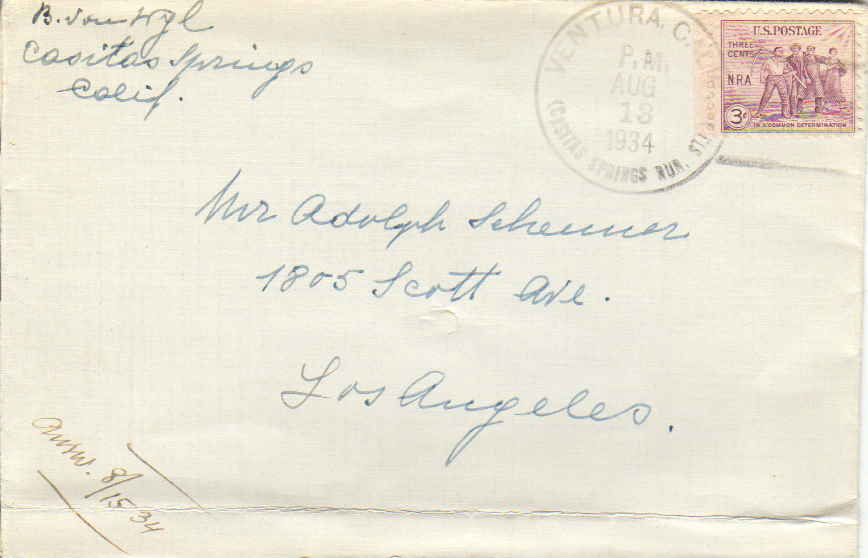 B. von Wyl
Casitas Springs
Calif.
VENTURA, CAL.
P.M.
AUG
13
1934
(CASITAS SPRINGS RUR. STA.)
U.S. POSTAGE
THREE
CENTS
NRA
3¢
IN A COMMON DETERMINATION
Mr Adolph Schenner
1805 Scott Ave.
Los Angeles.
answ. 8/15 34